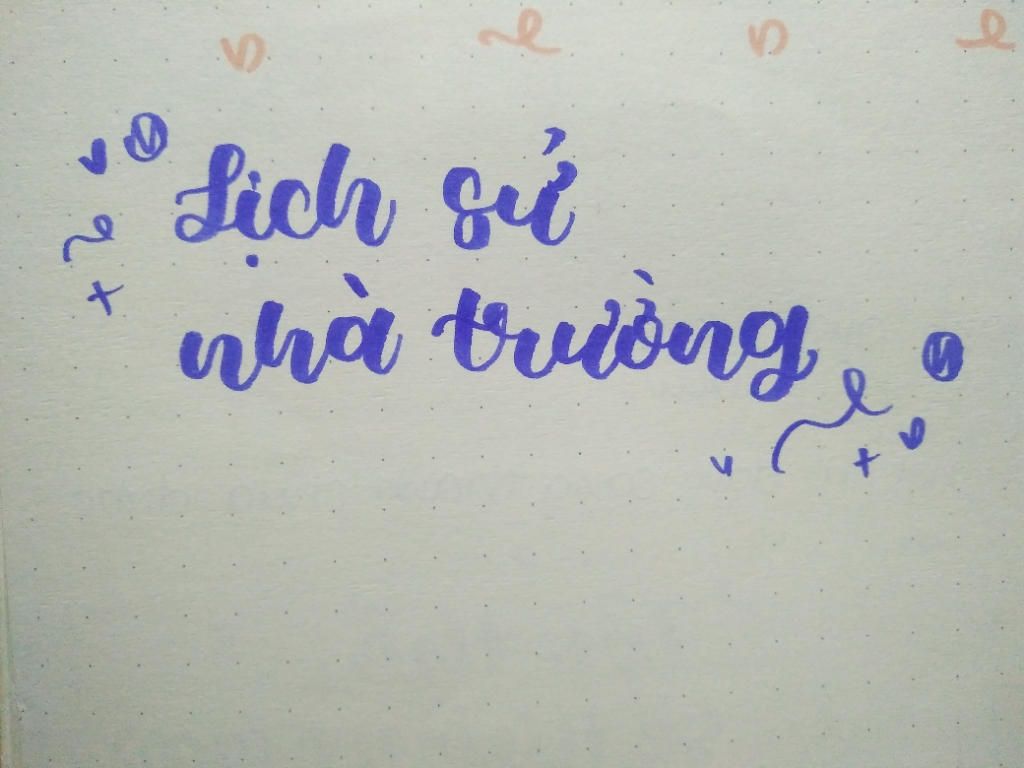 Lịch sử
nhà trường